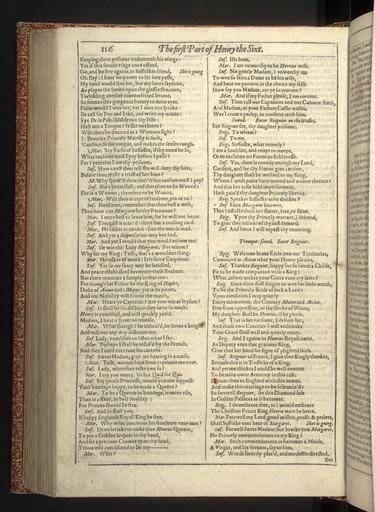 116
The first Part of Henry the Sixt.
Keeping them prisoner underneath his wings:
Yet if this servile usage once offend,
Go, and be free againe, as Suffolkes friend. She is going
Oh stay: I have no power to let her passe,
My hand would free her, but my heart sayes no.
As playes the Sunne upon the glassie streames,
Twinkling another counterfetted beame,
So seemes this gorgeous beauty to mine eyes.
Faine would I woe her, yet I dare not speake:
Ile call for Pen and Inke, and write my minde:
Fye De la Pole, disable not thy selfe:
Hast not a Tongue? Is she not heere?
Wilt thou be daunted at a Womans sight?
I: Beauties Princely Majesty is such,
Confounds the tongue, and makes the senses rough.
Mar. Say Earle of Suffolke, if thy name be so,
What ransome must I pay before I passe?
For I perceive I am thy prisoner.
Suf. How canst thou tell she will deny thy suite,
Before thou make a triall of her love?
M. Why speak'st thou not? What ransom must I pay?
Suf. She's beautifull; and therefore to be Wooed:
She is a Woman; therefore to be Wonne.
Mar. Wilt thou accept of ransome, yea or no?
Suf. Fond man, remember that thou hast a wife,
Then how can Margaret be thy Paramour?
Mar. I were best to leave him, for he will not heare.
Suf. There all is marr'd: there lies a cooling card.
Mar. He talkes at randon: sure the man is mad.
Suf. And yet a dispensation may bee had.
Mar. And yet I would that you would answer me:
Suf. Ile win this Lady Margaret. For whom?
Why for my King: Tush, that's a woodden thing.
Mar. He talkes of wood: It is some Carpenter.
Suf. Yet so my fancy may be satisfied,
And peace established betweene these Realmes.
But there remaines a scruple in that too:
For though her Father be the King of Naples,
Duke of Anjou and Mayne, yet is he poore,
And our Nobility will scorne the match.
Mar. Heare ye Captaine? Are you not at leysure?
Suf. It shall be so, disdaine they ne're so much:
Henry is youthfull, and will quickly yeeld.
Madam, I have a secret to reveale.
Mar. What though I be inthral'd, he seems a knight
And will not any way dishonor me.
Suf. Lady, vouchsafe to listen what I say.
Mar. Perhaps I shall be rescu'd by the French,
And then I need not crave his curtesie.
Suf. Sweet Madam, give me hearing in a cause.
Mar. Tush, women have bene captivate ere now.
Suf. Lady, wherefore talke you so?
Mar. I cry you mercy, 'tis but Quid for Quo.
Suf. Say gentle Princesse, would you not suppose
Your bondage happy, to be made a Queene?
Mar. To be a Queene in bondage, is more vile,
Than is a slave, in base servility:
For Princes should be free.
Suf. And so shall you,
If happy Englands Royall King be free.
Mar. Why what concernes his freedome unto mee?
Suf. Ile undertake to make thee Henries Queene,
To put a Golden Scepter in thy hand,
And set a precious Crowne upon thy head,
If thou wilt condiscend to be my——
Mar. What?
Suf. His love.
Mar. I am unworthy to be Henries wife.
Suf. No gentle Madam, I unworthy am
To woe so faire a Dame to be his wife,
And have no portion in the choice my selfe.
How say you Madam, are ye so content?
Mar. And if my Father please, I am content.
Suf. Then call our Captaines and our Colours forth,
And Madam, at your Fathers Castle walles,
Wee'l crave a parley, to conferre with him.
Sound. Enter Reignier on the Walles.
See Reignier see, thy daughter prisoner.
Reig. To whom?
Suf. To me.
Reig. Suffolke, what remedy?
I am a Souldier, and unapt to weepe,
Or to exclaime on Fortunes ficklenesse.
Suf. Yes, there is remedy enough my Lord,
Consent, and for thy Honor give consent,
Thy daughter shall be wedded to my King,
Whom I with paine have wooed and wonne thereto:
And this her easie held imprisonment,
Hath gain'd thy daughter Princely libertie.
Reig. Speakes Suffolke as he thinkes?
Suf. Faire Margaret knowes,
That Suffolke doth not flatter, face, or faine.
Reig. Upon thy Princely warrant, I descend,
To give thee answer of thy just demand.
Suf. And heere I will expect thy comming.
Trumpets sound. Enter Reignier.
Reig. Welcome brave Earle into our Territories,
Command in Anjou what your Honor pleases.
Suf. Thankes Reignier, happy for so sweet a Childe,
Fit to be made companion with a King:
What answer makes your Grace unto my suite?
Reig. Since thou dost daigne to woe her little worth,
To be the Princely Bride of such a Lord:
Upon condition I may quietly
Enjoy mine owne, the Country Maine and Anjou,
Free from oppression, or the stroke of Warre,
My daughter shall be Henries, if he please.
Suf. That is her ransome, I deliver her,
And those two Counties I will undertake
Your Grace shall well and quietly enjoy.
Reig. And I againe in Henries Royall name,
As Deputy unto that gracious King,
Give thee her hand for signe of plighted faith.
Suf. Reignier of France, I give thee Kingly thankes,
Because this is in Trafficke of a King.
And yet me thinkes I could be well content
To be mine owne Atturney in this case.
Ile over then to England with this newes,
And make this marriage to be solemniz'd:
So farewell Reignier, set this Diamond safe
In Golden Pallaces as it becomes.
Reig. I do embrace thee, as I would embrace
The Christian Prince King Henrie were he heere.
Mar. Farewell my Lord, good wishes, praise, & praiers,
Shall Suffolke ever have of Margaret. Shee is going.
Suf. Farwell sweet Madam: but hearke you Margaret,
No Princely commendations to my King?
Mar. Such commendations as becomes a Maide,
A Virgin, and his Servant, say to him.
Suf. Words sweetly plac'd, and modestie directed,
But